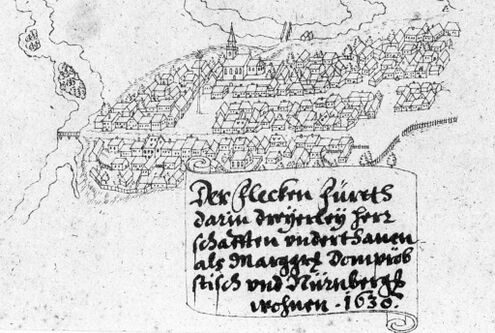 Der flecken fürth
darin dreyerley herr
schafften vnderthanen
als Marggrf Dompröb
stisch vnd Nürnbergf
wohnen · 1630 ·